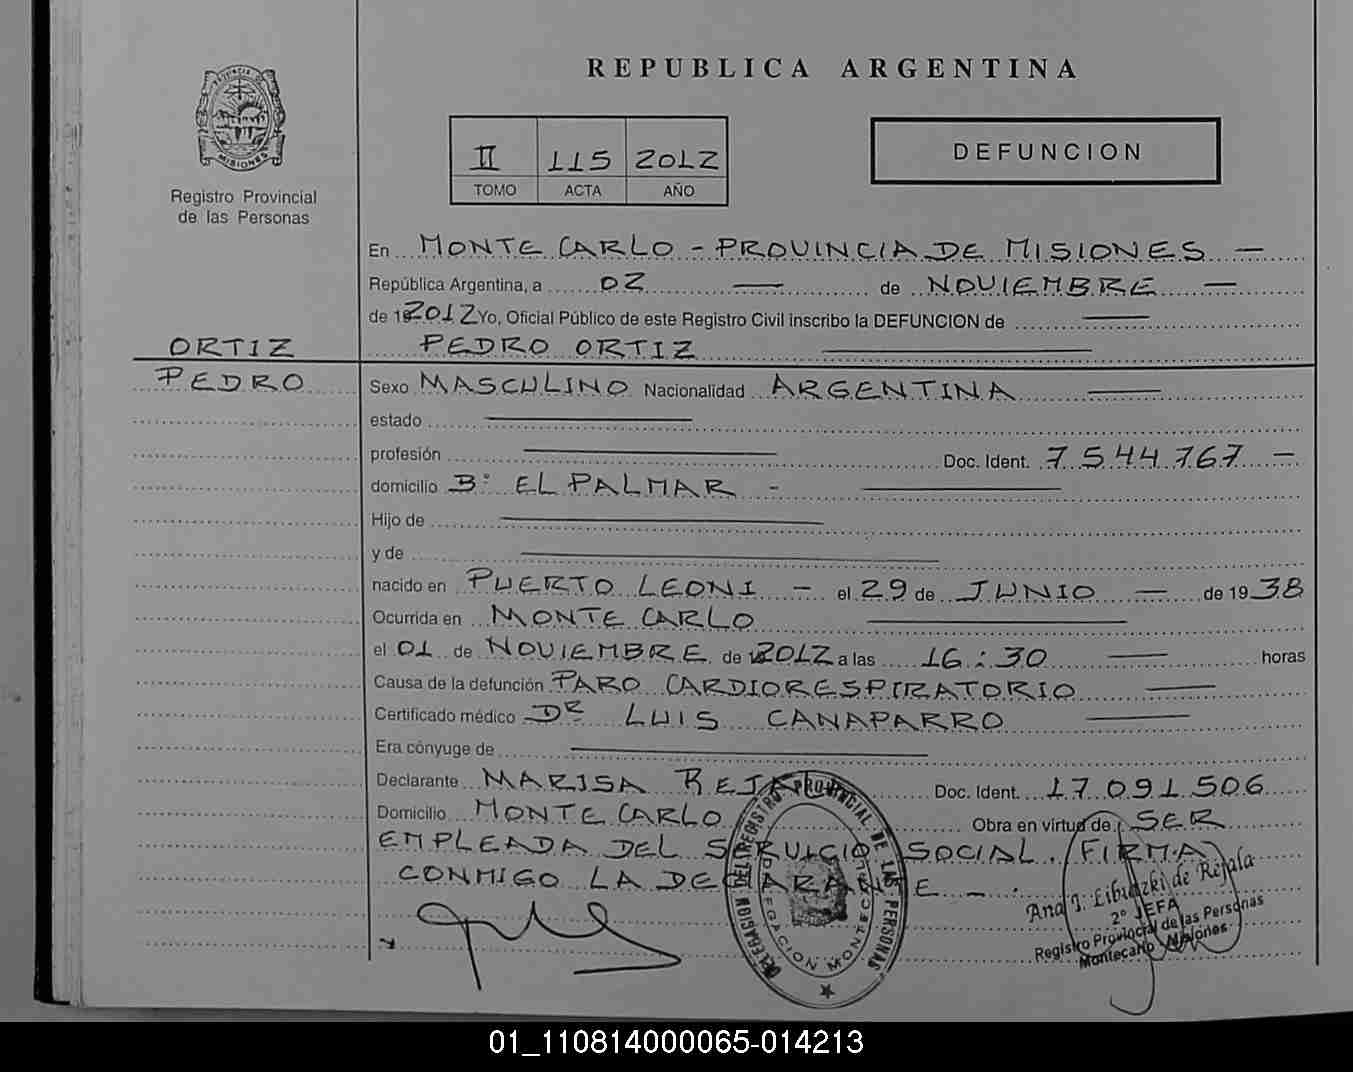 REPUBLICA ARGENTINA
PROVINCIA DE
MISIONES
Registro Provincial
de las Personas
II 115 2012
TOMO ACTA AÑO
DEFUNCION
En MONTE CARLO - PROVINCIA DE MISIONES —
República Argentina, a 02 — de NOVIEMBRE —
de 2012 Yo, Oficial Público de este Registro Civil inscribo la DEFUNCION de —
ORTIZ
PEDRO
PEDRO ORTIZ —
Sexo MASCULINO Nacionalidad ARGENTINA —
estado —
profesión — Doc. Ident. 7544767 —
domicilio Bº EL PALMAR - —
Hijo de —
y de —
nacido en PUERTO LEONI — el 29 de JUNIO — de 1938
Ocurrida en MONTE CARLO —
el 01 de NOVIEMBRE de 2012 a las 16:30 — horas
Causa de la defunción PARO CARDIORESPIRATORIO —
Certificado médico Dr LUIS CANAPARRO —
Era cónyuge de —
Declarante MARISA Doc. Ident. 17091506
Domicilio MONTE CARLO Obra en virtud de SER
EMPLEADA DEL SERVICIO SOCIAL. FIRMA
CONMIGO LA DECLARANTE —.
DELEGACION DEL REGISTRO PROVINCIAL DE LAS PERSONAS
DELEGACION MONTECARLO
Ana J. de Rejala
2º JEFA
Registro Provincial de las Personas
Montecarlo Misiones
01_110814000065-014213